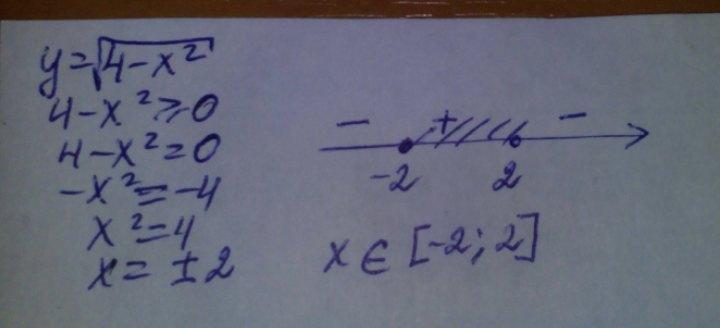 y=√4-x²
4-x²≥0
4-x²=0
-x²=-4
x²=4
x=±2
- + -
-2 2
x∈[-2;2]